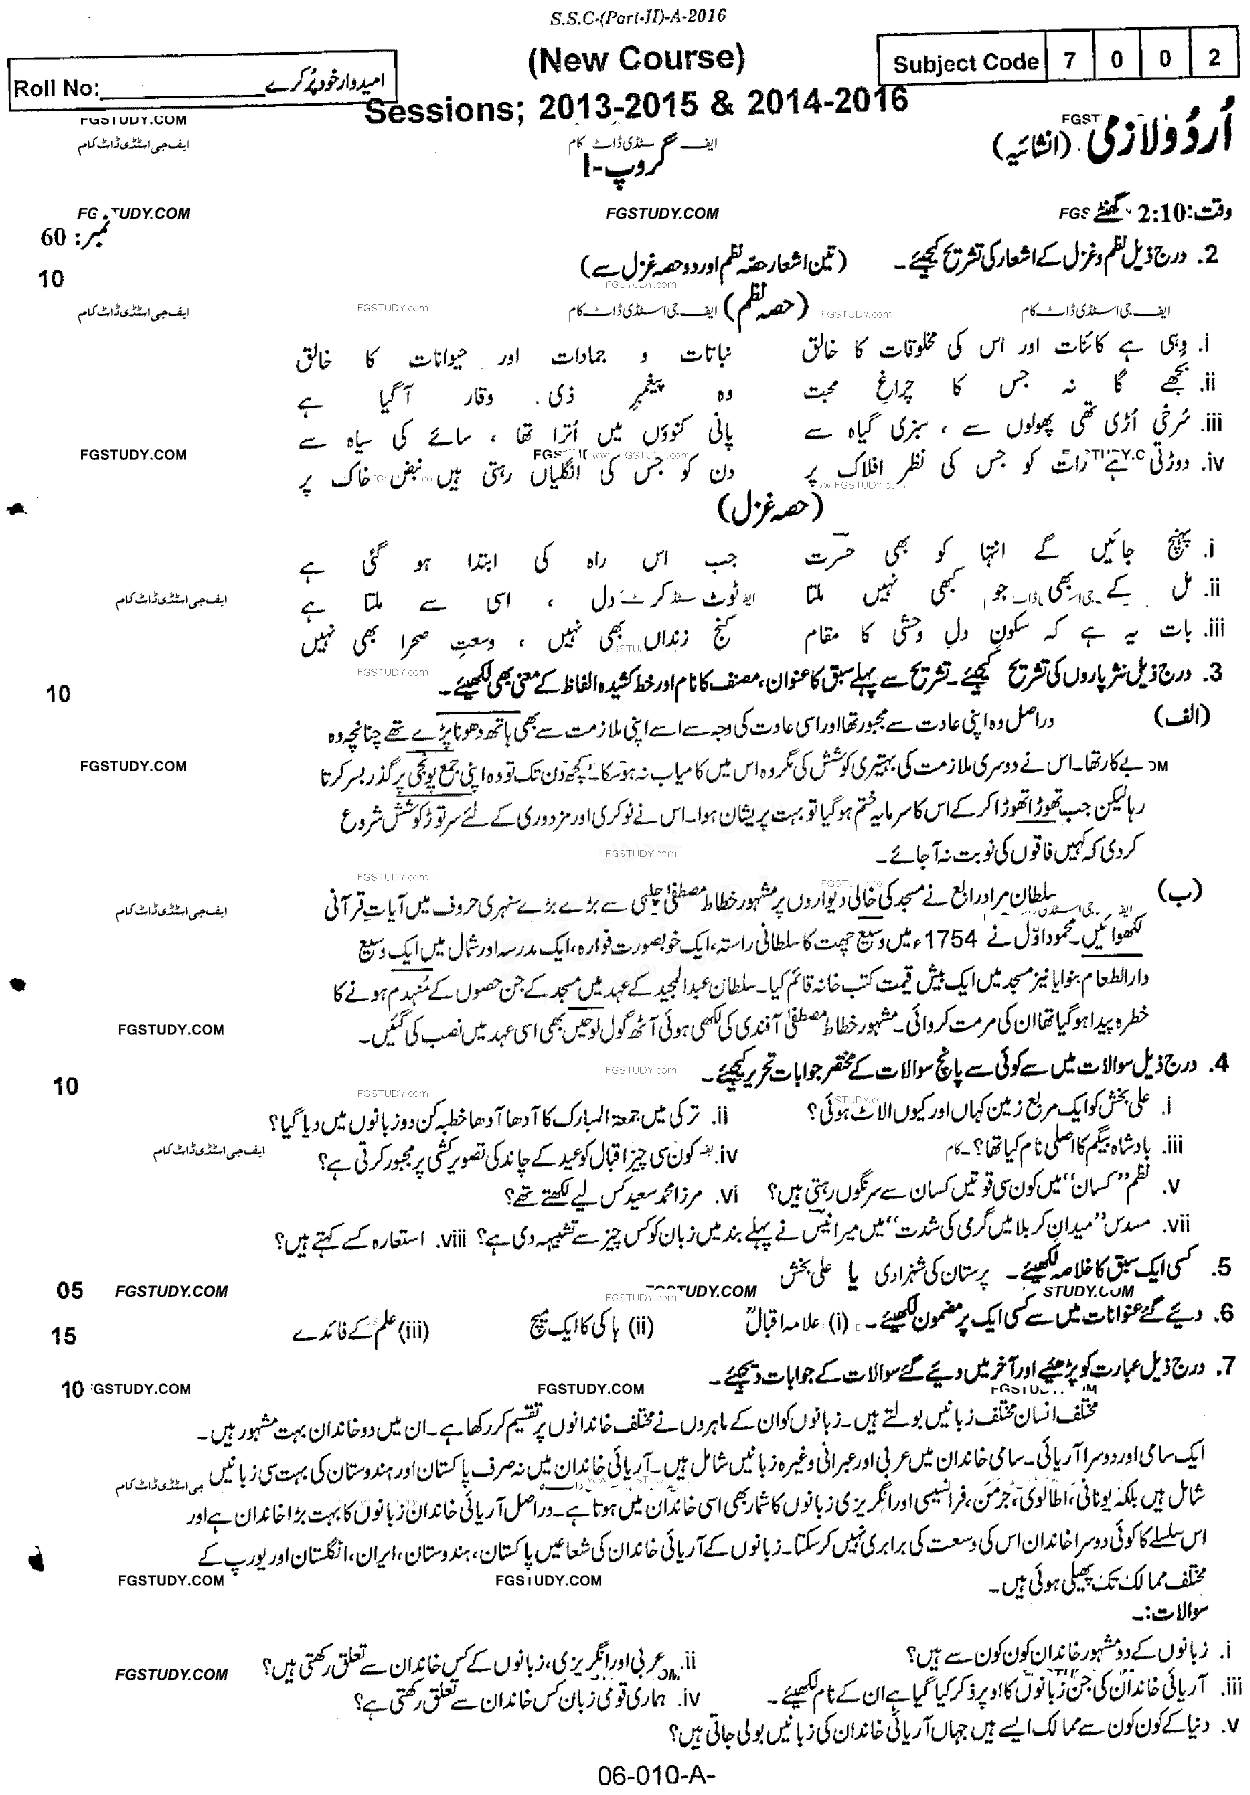 S.S.C-(Part-II)-A-2016
(New Course)
Subject Code 7 0 0 2
Roll No: امیدوار خود پُر کرے
Sessions; 2013-2015 & 2014-2016
اُردو لازمی (انشائیہ)
گروپ-I
وقت: 2:10 گھنٹے
نمبر: 60
2. درج ذیل نظم و غزل کے اشعار کی تشریح کیجیئے۔ (تین اشعار حصّہ نظم اور دو حصہ غزل سے) 10
(حصہ نظم)
i. وہی ہے کائنات اور اس کی مخلوقات کا خالق نباتات و جمادات اور حیوانات کا خالق
ii. بجھے گا نہ جس کا چراغِ محبت وہ پیغمبرِ ذی وقار آ گیا ہے
iii. سُرخی اُڑی تھی پھولوں سے ، سبزی گیاہ سے پانی کنوؤں میں اُترا تھا ، سائے کی سیاہ سے
iv. دوڑتی ہے رات کو جس کی نظر افلاک پر دن کو جس کی انگلیاں رہتی ہیں نبضِ خاک پر
(حصہ غزل)
i. پہنچ جائیں گے انتہا کو بھی حسرت جب اس راہ کی ابتدا ہو گئی ہے
ii. مل کے بھی جو کبھی نہیں ملتا ٹوٹ کر دل ، اسی سے ملتا ہے
iii. بات یہ ہے کہ سکونِ دلِ وحشی کا مقام کنج زنداں بھی نہیں ، وسعتِ صحرا بھی نہیں
3. درج ذیل نثر پاروں کی تشریح کیجیئے۔ تشریح سے پہلے سبق کا عنوان، مصنف کا نام اور خط کشیدہ الفاظ کے معنی بھی لکھیئے۔ 10
(الف) دراصل وہ اپنی عادت سے مجبور تھا اور اسی عادت کی وجہ سے اسے اپنی ملازمت سے بھی ہاتھ دھونا پڑے تھے چنانچہ وہ
بے کار تھا۔ اس نے دوسری ملازمت کی بہتیری کوشش کی مگر وہ اس میں کامیاب نہ ہو سکا۔ کچھ دن تک تو وہ اپنی جمع پونجی پر گذر بسر کرتا
رہا لیکن جب تھوڑا تھوڑا کر کے اس کا سرمایہ ختم ہو گیا تو بہت پریشان ہوا۔ اس نے نوکری اور مزدوری کے لئے سر توڑ کوشش شروع
کر دی کہ کہیں فاقوں کی نوبت نہ آ جائے۔
(ب) سلطان مراد رابع نے مسجد کی خالی دیواروں پر مشہور خطاط مصطفیٰ چلپی سے بڑے بڑے سنہری حروف میں آیاتِ قرآنی
لکھوائیں۔ محمود اوّل نے 1754ء میں وسیع چھت کا سلطانی راستہ، ایک خوبصورت فوارہ، ایک مدرسہ اور شمال میں ایک وسیع
دارالطعام بنوایا نیز مسجد میں ایک بیش قیمت کتب خانہ قائم کیا۔ سلطان عبدالمجید کے عہد میں مسجد کے جن حصوں کے مُنہدم ہونے کا
خطرہ پیدا ہو گیا تھا ان کی مرمت کروائی۔ مشہور خطاط مصطفیٰ آفندی کی لکھی ہوئی آٹھ گول لوحیں بھی اسی عہد میں نصب کی گئیں۔
4. درج ذیل سوالات میں سے کوئی سے پانچ سوالات کے مختصر جوابات تحریر کیجیئے۔ 10
i. علی بخش کو ایک مربع زمین کہاں اور کیوں الاٹ ہوئی؟ ii. ترکی میں جمعۃ المبارک کا آدھا آدھا خطبہ کن دو زبانوں میں دیا گیا؟
iii. بادشاہ بیگم کا اصلی نام کیا تھا؟ iv. کون سی چیز اقبال کو عید کے چاند کی تصویر کشی پر مجبور کرتی ہے؟
v. نظم "کسان" میں کون سی قوتیں کسان سے سرنگوں رہتی ہیں؟ vi. مرزا محمد سعید کس لیے لکھتے تھے؟
vii. مسدس "میدانِ کربلا میں گرمی کی شدت" میں میر انیس نے پہلے بند میں زبان کو کس چیز سے تشبیہ دی ہے؟ viii. استعارہ کسے کہتے ہیں؟
5. کسی ایک سبق کا خلاصہ لکھیئے۔ پرستان کی شہزادی یا علی بخش 05
6. دیئے گئے عنوانات میں سے کسی ایک پر مضمون لکھیئے۔ (i) علامہ اقبالؒ (ii) ہاکی کا ایک میچ (iii) علم کے فائدے 15
7. درج ذیل عبارت کو پڑھیئے اور آخر میں دیئے گئے سوالات کے جوابات دیجیئے۔ 10
مختلف انسان مختلف زبانیں بولتے ہیں۔ زبانوں کو ان کے ماہروں نے مختلف خاندانوں پر تقسیم کر رکھا ہے۔ ان میں دو خاندان بہت مشہور ہیں۔
ایک سامی اور دوسرا آریائی۔ سامی خاندان میں عربی اور عبرانی وغیرہ زبانیں شامل ہیں۔ آریائی خاندان میں نہ صرف پاکستان اور ہندوستان کی بہت سی زبانیں
شامل ہیں بلکہ یونانی، اطالوی، جرمن، فرانسیسی اور انگریزی زبانوں کا شمار بھی اسی خاندان میں ہوتا ہے۔ دراصل آریائی خاندان زبانوں کا بہت بڑا خاندان ہے اور
اس سلسلے کا کوئی دوسرا خاندان اس کی وسعت کی برابری نہیں کر سکتا۔ زبانوں کے آریائی خاندان کی شعائیں پاکستان، ہندوستان، ایران، انگلستان اور یورپ کے
مختلف ممالک تک پھیلی ہوئی ہیں۔
سوالات:۔
i. زبانوں کے دو مشہور خاندان کون کون سے ہیں؟ ii. عربی اور انگریزی، زبانوں کے کس خاندان سے تعلق رکھتی ہیں؟
iii. آریائی خاندان کی جن زبانوں کا اوپر ذکر کیا گیا ہے ان کے نام لکھیئے۔ iv. ہماری قومی زبان کس خاندان سے تعلق رکھتی ہے؟
v. دنیا کے کون کون سے ممالک ایسے ہیں جہاں آریائی خاندان کی زبانیں بولی جاتی ہیں؟
06-010-A-